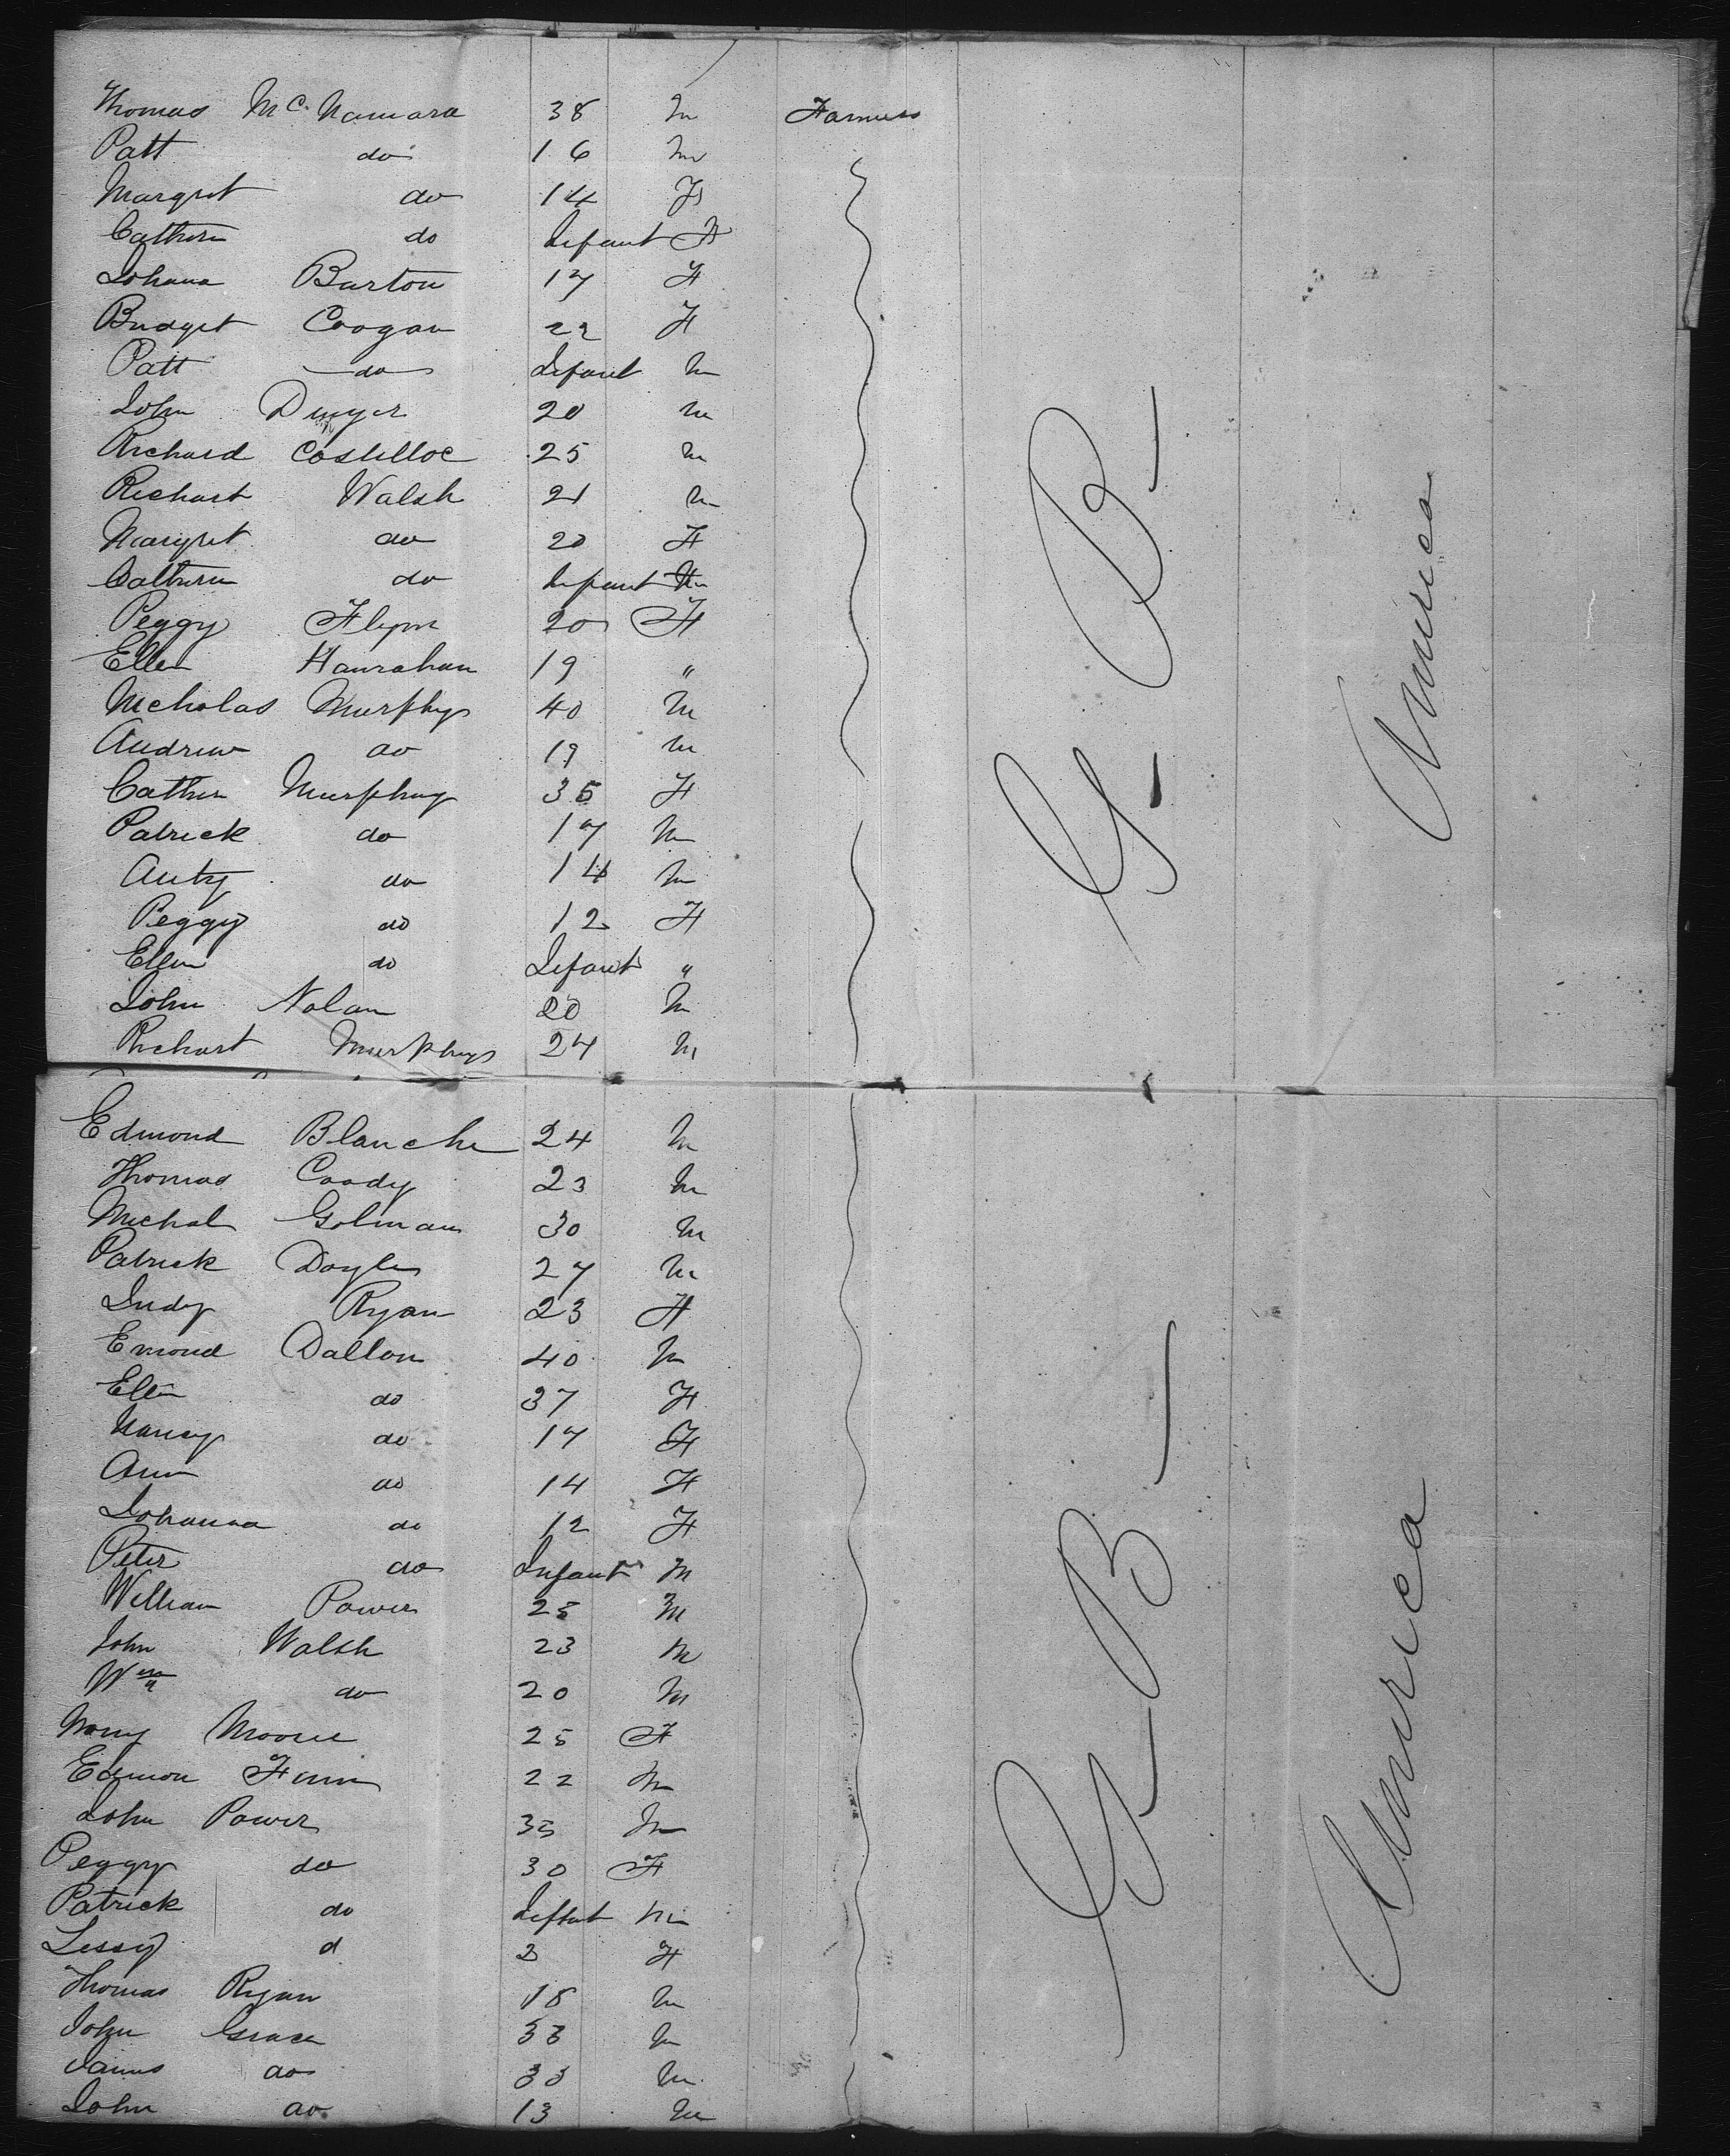 Thomas McNamara 38 M Farmers
Patt do 16 M
Margret do 14 F
Cathern do Infant F
Johana Burton 17 F
Bridget Coogan 22 F
Patt do Infant M
John Dwyer 20 M
Richard Costelloe 25 M
Richart Walsh 21 M
Margret do 20 F
Cathern do Infant
Peggy Flynn 20 F
Ellen Hanrahan 19 "
Nicholas Murphy 40 M
Andrew do 19 M
Cathern Murphy 35 F
Patrick do 17 M
Anty do 14 M
Peggy do 12 F
Ellen do Infant "
John Nolan 20 M
Richart Murphy 24 M
G. B.
America
Edmond Blanche 24 M
Thomas Coody 23 M
Michal Golman 30 M
Patrick Doyle 27 M
Judy Ryan 23 F
Emond Dalton 40 M
Ellen do 37 F
Nancy do 17 F
Ann do 14 F
Johanna do 12 F
Peter do Infant M
William Power 25 M
John Walsh 23 M
Wm do 20 M
Moore 25 F
Edmon Finn 22 M
John Power 35 M
Peggy do 30 F
Patrick do Inftant M
d F
Thomas Ryan 18 M
John Grace M
James do 33 M
John do 13 M
G. B.
America